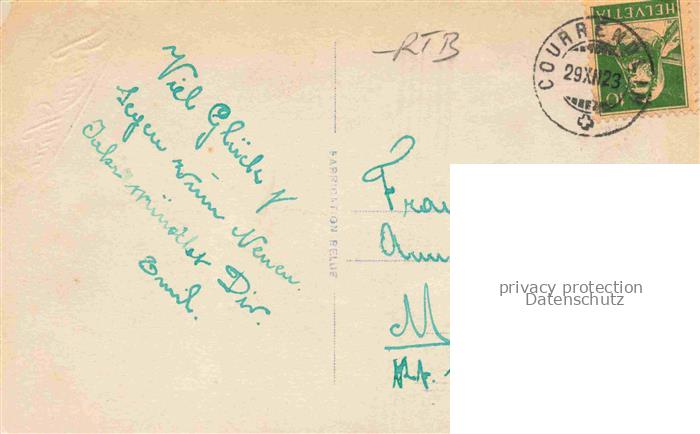 RTB
HELVETIA
COURRENDLIN
29 XII 23
Viel Glück &
Segen zum Neuen
Jahr wünscht Dir
Emil.
FABRICATION BELGE
Frau
M
Kt.
privacy protection
Datenschutz